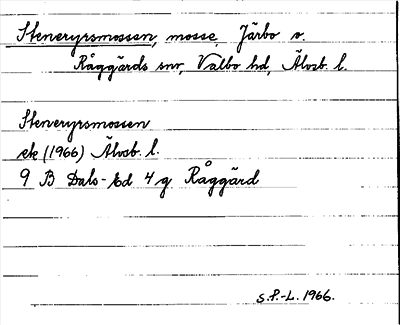 Steneryrsmossen, mosse, Järbo s.
Råggärds snr, Valbo hd, Älvsb. l.
Steneryrsmossen
ek (1966) Älvsb. l.
9 B Dals-Ed 4 g Råggärd
S.F.-L. 1966.